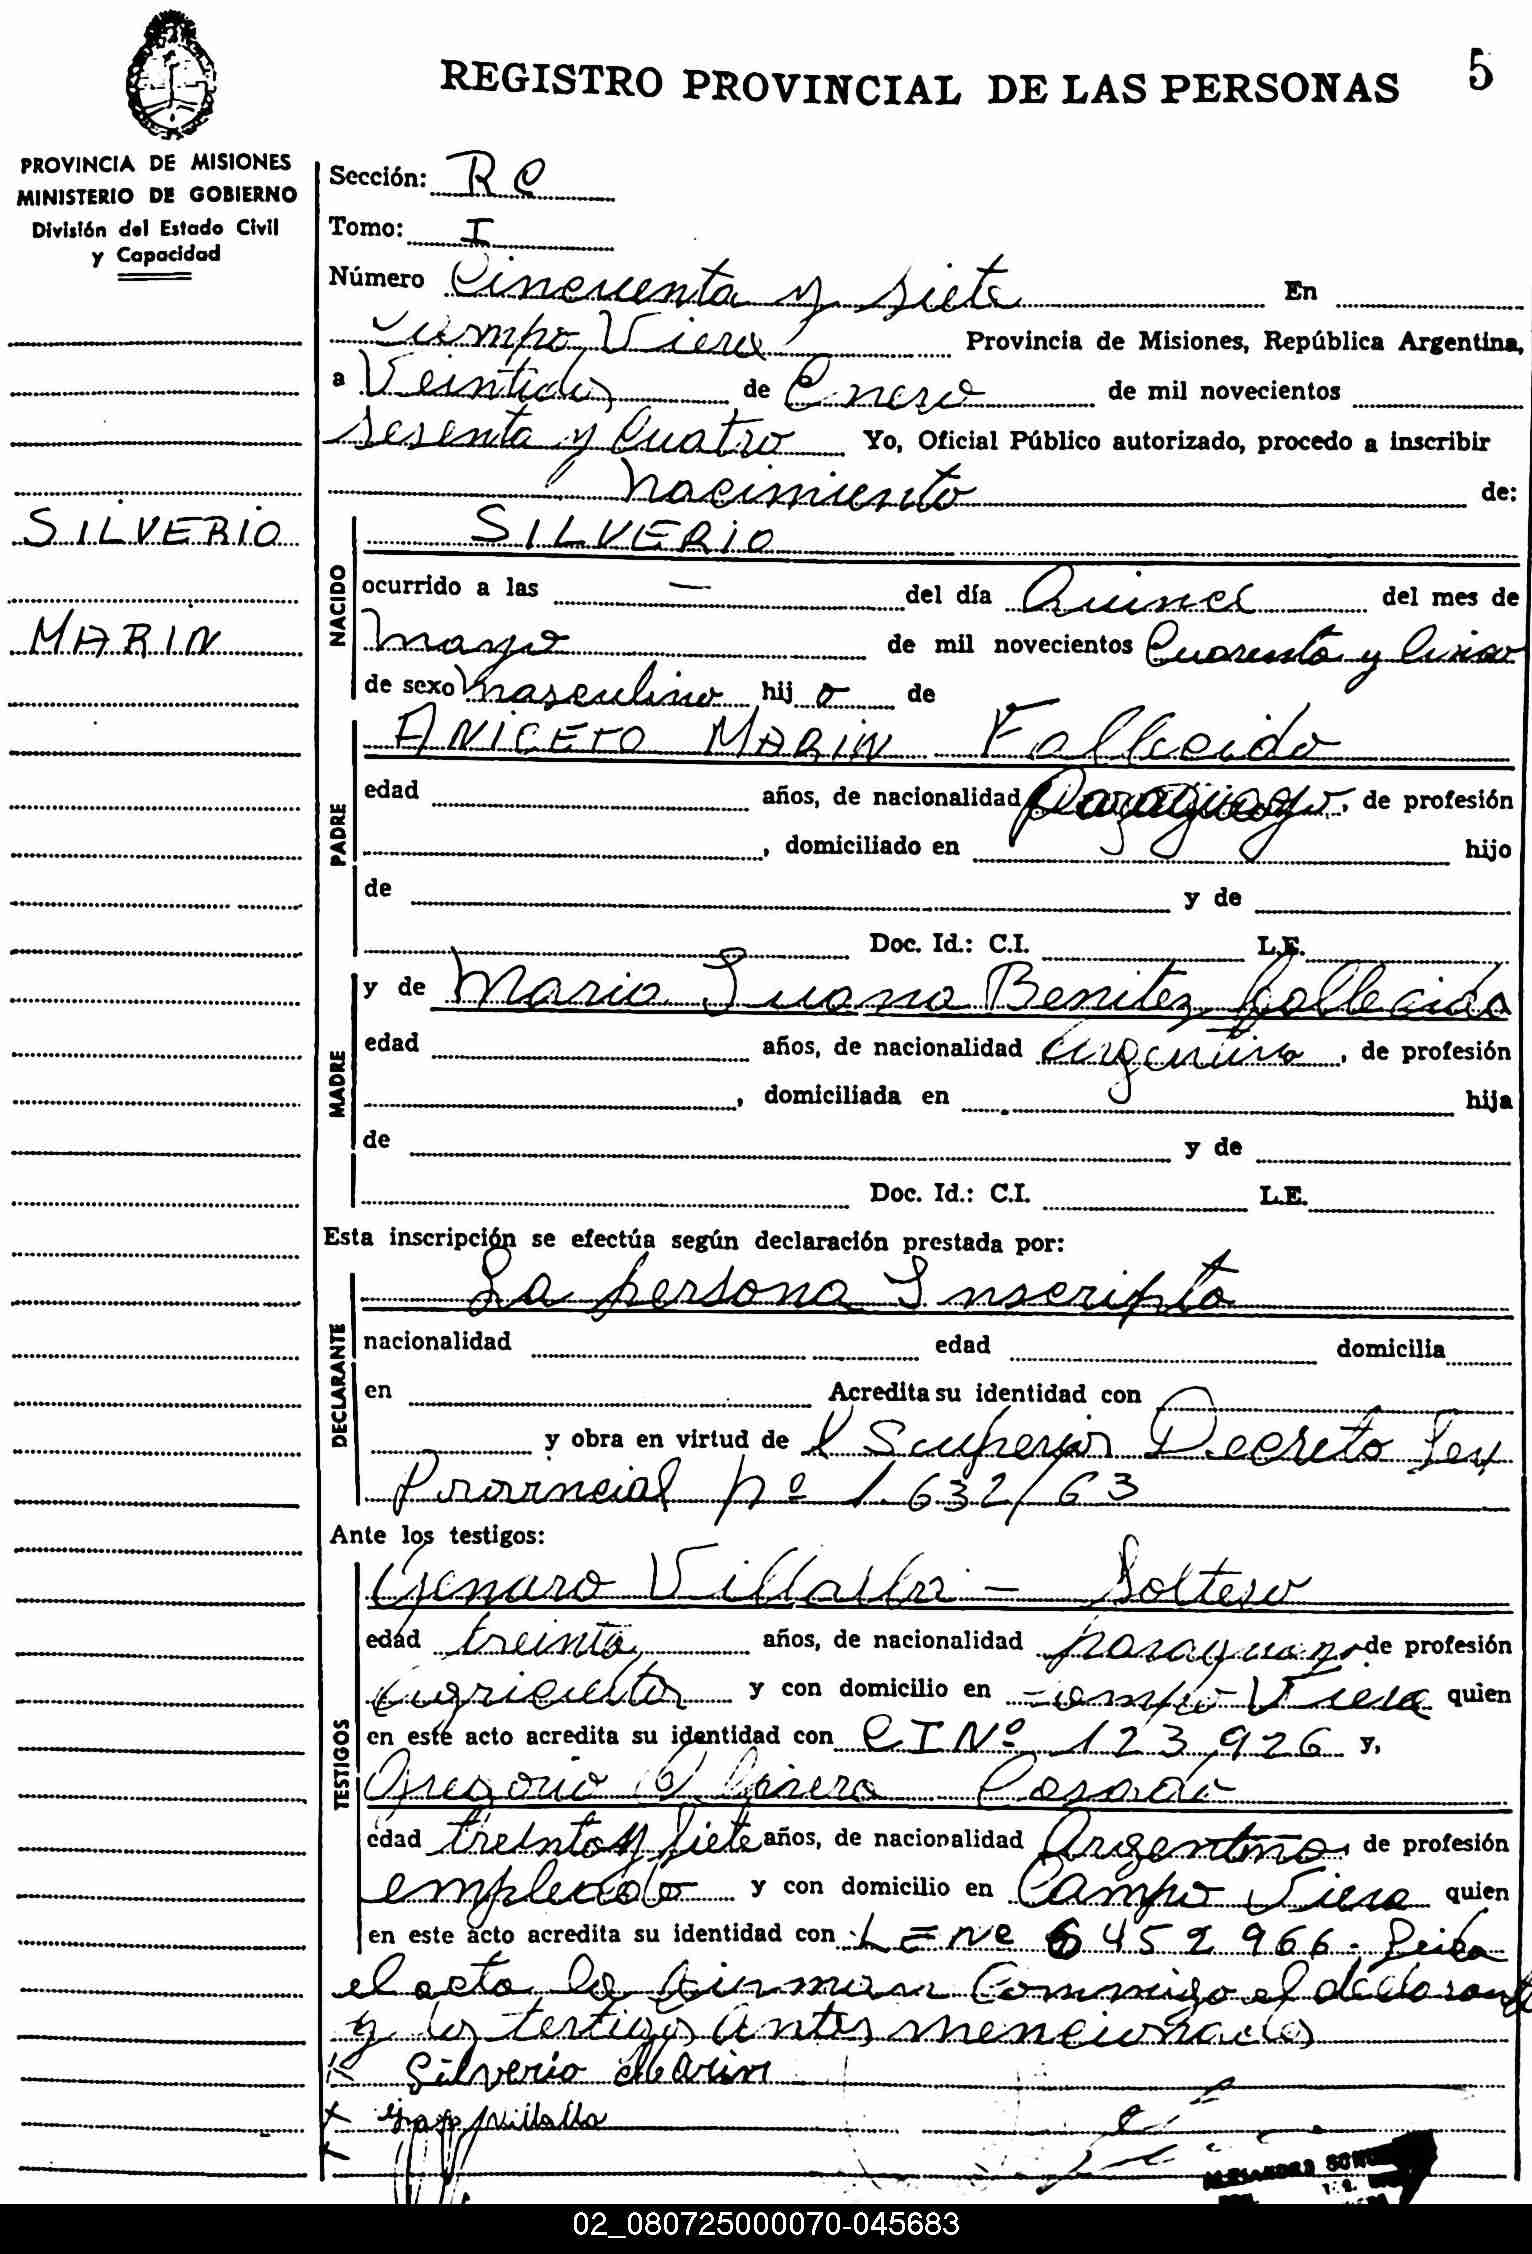 REGISTRO PROVINCIAL DE LAS PERSONAS 5
PROVINCIA DE MISIONES
MINISTERIO DE GOBIERNO
División del Estado Civil
y Capacidad
SILVERIO
MARIN
Sección: R C
Tomo: I
Número Cincuenta y siete En
Campo Viera Provincia de Misiones, República Argentina,
a Veintidos de Enero de mil novecientos
sesenta y Cuatro Yo, Oficial Público autorizado, procedo a inscribir
nacimiento de:
NACIDO
SILVERIO
ocurrido a las — del día Quince del mes de
mayo de mil novecientos Cuarenta y Cinco
de sexo masculino hij o de
PADRE
ANICETO MARIN Fallecido
edad años, de nacionalidad Paraguayo, de profesión
, domiciliado en hijo
de y de
Doc. Id.: C.I. L.E.
MADRE
y de Maria Juana Benitez fallecida
edad años, de nacionalidad argentina, de profesión
, domiciliada en hija
de y de
Doc. Id.: C.I. L.E.
Esta inscripción se efectúa según declaración prestada por:
DECLARANTE
La persona Inscripta
nacionalidad edad domicilia
en Acredita su identidad con
y obra en virtud de l Superior Decreto Ley
Provincial nº 1.632/63
Ante los testigos:
TESTIGOS
Genaro Villalba — Soltero
edad treinta años, de nacionalidad paraguayo de profesión
agricultor y con domicilio en Campo Viera quien
en este acto acredita su identidad con CI Nº 123,926 y,
Gregorio Casado
edad treinta y siete años, de nacionalidad Argentino, de profesión
empleado y con domicilio en Campo Viera quien
en este acto acredita su identidad con LE Nº 6452966. Leida
el acta la firman Conmigo el declarante
y los testigos antes mencionados
Silverio Marin
Villalba
02_080725000070-045683